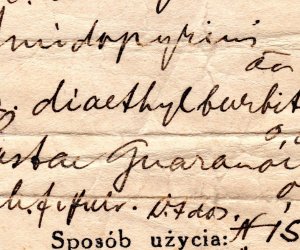 midopyrini
āā
diaethylbarbit
astae Guaranae
M.f.f.
D.t.dos. N
Sposób użycia: